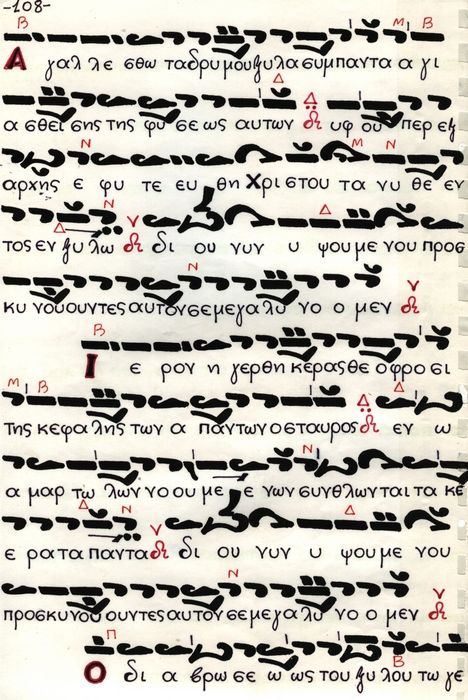 -108-
Α γαλ λε σθω τα δρυ μου ξυ λα συμ παν τα α γι
α σθει σης της φυ σε ως αυτων υφ ου περ εξ
αρχης ε φυ τε ευ θη Χρι στου τα νυ θε εν
τος εν ξυ λω δι ου νυν υ ψου με νου προς
κυ νου ουν τες αυτον σε με γα λυ νο ο μεν
Ι ε ρον η γερ θη κε ρας θε ο φρο σι
της κε φα λης των α παν των ο σταυρος εν ω
α μαρ τω λων νο ου με ε νων συν θλων ται τα κε
ε ρα τα παν τα δι ου νυν υ ψου με νου
προσκυ νου ουν τες αυτον σε με γα λυ νο ο μεν
Ο δι α βρω σε ω ως του ξυ λου τω γε